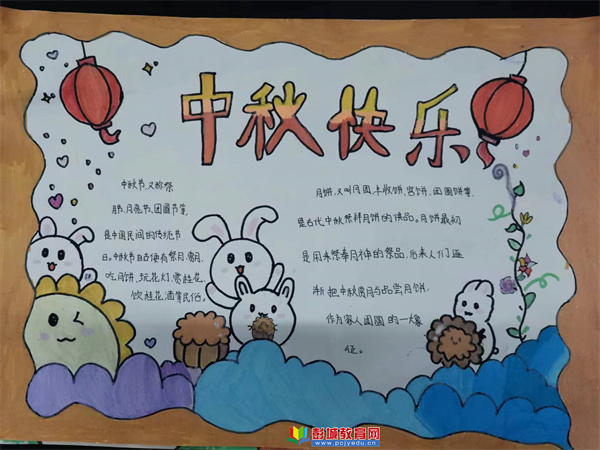 中秋快乐
中秋节,又称祭
月节、月亮节、团圆节等,
是中国民间的传统节
日。中秋节自古便有祭月、赏月、
吃月饼、玩花灯、赏桂花、
饮桂花酒等民俗。
月饼、又叫月团、丰收饼、宫饼、团圆饼等,
是古代中秋祭拜月神的供品。月饼最初
是用来祭奉月神的祭品,后来人们逐
渐把中秋赏月与品尝月饼,
作为家人团圆的一大象
征。
彭城教育网
www.pcjyedu.cn